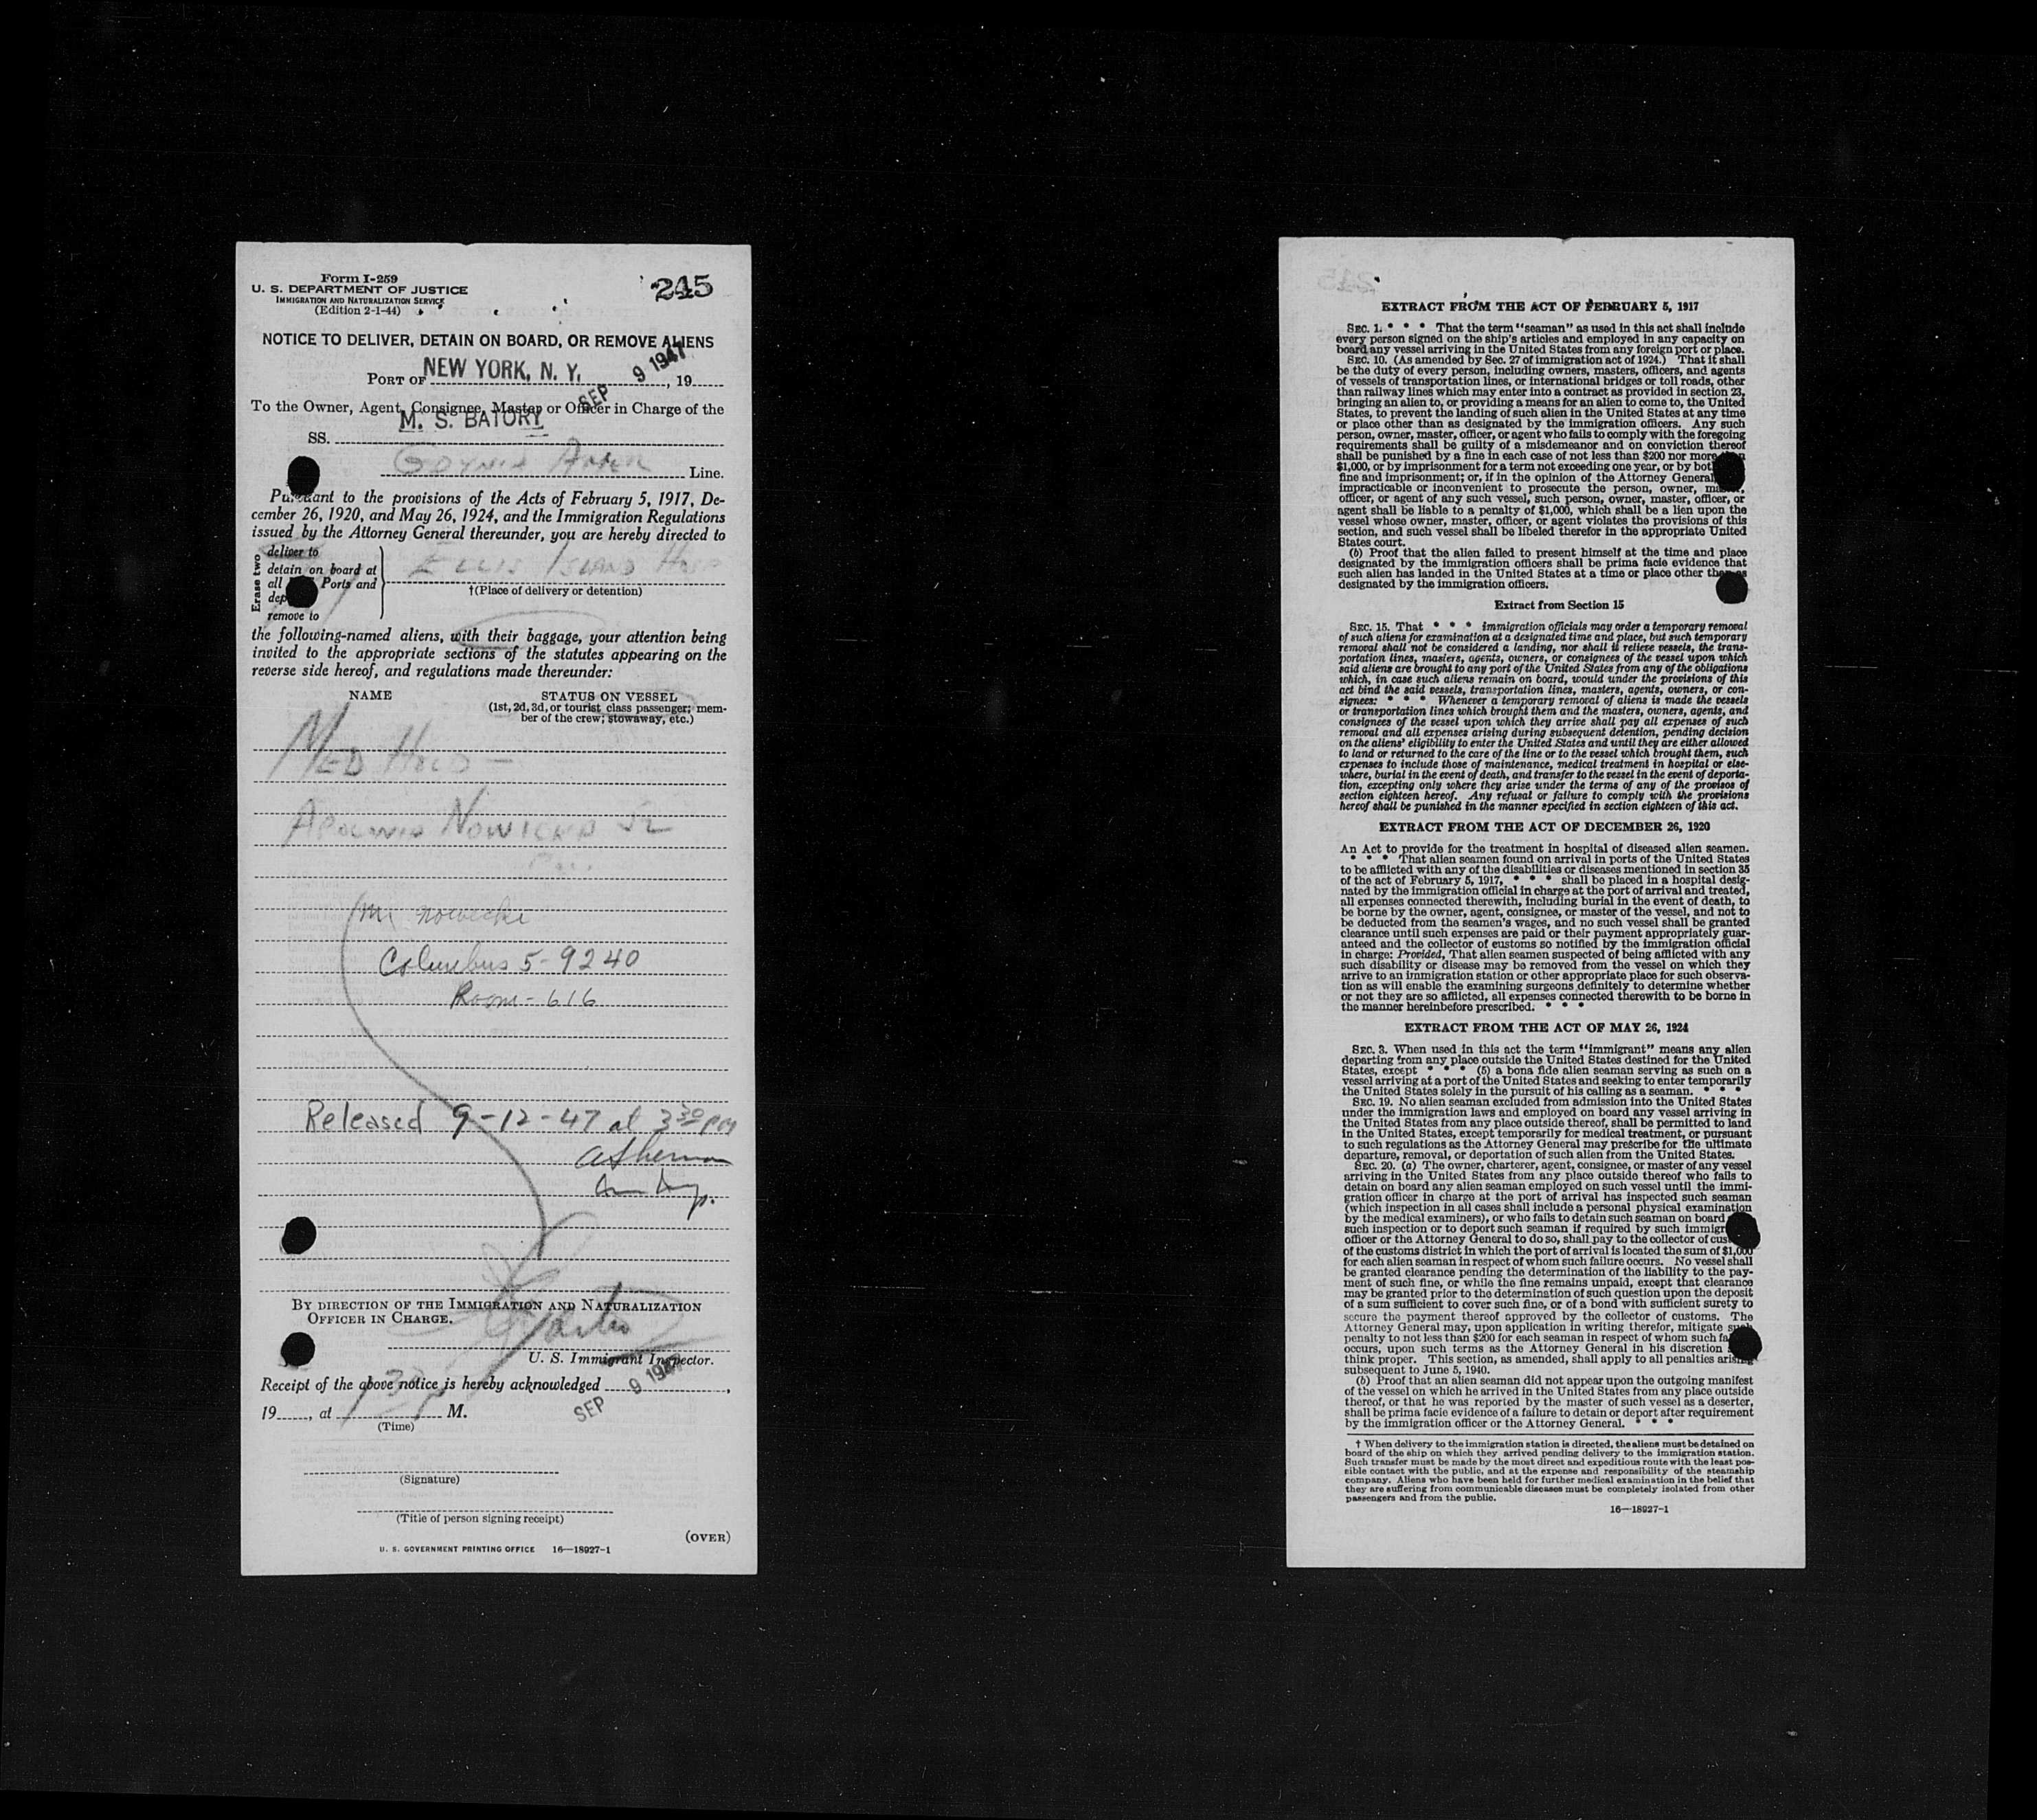 Form I-259
U. S. DEPARTMENT OF JUSTICE
IMMIGRATION AND NATURALIZATION SERVICE
(Edition 2-1-44)
245
NOTICE TO DELIVER, DETAIN ON BOARD, OR REMOVE ALIENS
PORT OF NEW YORK, N. Y. SEP 9 1947, 19
To the Owner, Agent, Consignee, Master or Officer in Charge of the
SS. M. S. BATORY
GDYNIA AMER Line.
Pursuant to the provisions of the Acts of February 5, 1917, De-
cember 26, 1920, and May 26, 1924, and the Immigration Regulations
issued by the Attorney General thereunder, you are hereby directed to
Erase two
deliver to
detain on board at
all Ports and
dep
remove to
ELLIS ISLAND HOSP
†(Place of delivery or detention)
the following-named aliens, with their baggage, your attention being
invited to the appropriate sections of the statutes appearing on the
reverse side hereof, and regulations made thereunder:
NAME
STATUS ON VESSEL
(1st, 2d, 3d, or tourist class passenger; mem-
ber of the crew; stowaway, etc.)
MED HOLD -
NOWICKA
Mr nowicki
Columbus 5-9240
Room - 616
Released 9-12-47 at 3 30 PM
BY DIRECTION OF THE IMMIGRATION AND NATURALIZATION
OFFICER IN CHARGE.
U. S. Immigrant Inspector.
Receipt of the above notice is hereby acknowledged SEP 9 1947,
19, at M.
(Time)
(Signature)
(Title of person signing receipt)
(OVER)
U. S. GOVERNMENT PRINTING OFFICE 16—18927-1
EXTRACT FROM THE ACT OF FEBRUARY 5, 1917
SEC. 1. * * * That the term "seaman" as used in this act shall include
every person signed on the ship's articles and employed in any capacity on
board any vessel arriving in the United States from any foreign port or place.
SEC. 10. (As amended by Sec. 27 of immigration act of 1924.) That it shall
be the duty of every person, including owners, masters, officers, and agents
of vessels of transportation lines, or international bridges or toll roads, other
than railway lines which may enter into a contract as provided in section 23,
bringing an alien to, or providing a means for an alien to come to, the United
States, to prevent the landing of such alien in the United States at any time
or place other than as designated by the immigration officers. Any such
person, owner, master, officer, or agent who fails to comply with the foregoing
requirements shall be guilty of a misdemeanor and on conviction thereof
shall be punished by a fine in each case of not less than $200 nor more
$1,000, or by imprisonment for a term not exceeding one year, or by bot
fine and imprisonment; or, if in the opinion of the Attorney General
impracticable or inconvenient to prosecute the person, owner, master,
officer, or agent of any such vessel, such person, owner, master, officer, or
agent shall be liable to a penalty of $1,000, which shall be a lien upon the
vessel whose owner, master, officer, or agent violates the provisions of this
section, and such vessel shall be libeled therefor in the appropriate United
States court.
(b) Proof that the alien failed to present himself at the time and place
designated by the immigration officers shall be prima facie evidence that
such alien has landed in the United States at a time or place other than as
designated by the immigration officers.
Extract from Section 15
SEC. 15. That * * * immigration officials may order a temporary removal
of such aliens for examination at a designated time and place, but such temporary
removal shall not be considered a landing, nor shall it relieve vessels, the trans-
portation lines, masters, agents, owners, or consignees of the vessel upon which
said aliens are brought to any port of the United States from any of the obligations
which, in case such aliens remain on board, would under the provisions of this
act bind the said vessels, transportation lines, masters, agents, owners, or con-
signees: * * * Whenever a temporary removal of aliens is made the vessels
or transportation lines which brought them and the masters, owners, agents, and
consignees of the vessel upon which they arrive shall pay all expenses of such
removal and all expenses arising during subsequent detention, pending decision
on the aliens' eligibility to enter the United States and until they are either allowed
to land or returned to the care of the line or to the vessel which brought them, such
expenses to include those of maintenance, medical treatment in hospital or else-
where, burial in the event of death, and transfer to the vessel in the event of deporta-
tion, excepting only where they arise under the terms of any of the provisos of
section eighteen hereof. Any refusal or failure to comply with the provisions
hereof shall be punished in the manner specified in section eighteen of this act.
EXTRACT FROM THE ACT OF DECEMBER 26, 1920
An Act to provide for the treatment in hospital of diseased alien seamen.
* * * That alien seamen found on arrival in ports of the United States
to be afflicted with any of the disabilities or diseases mentioned in section 35
of the act of February 5, 1917, * * * shall be placed in a hospital desig-
nated by the immigration official in charge at the port of arrival and treated,
all expenses connected therewith, including burial in the event of death, to
be borne by the owner, agent, consignee, or master of the vessel, and not to
be deducted from the seamen's wages, and no such vessel shall be granted
clearance until such expenses are paid or their payment appropriately guar-
anteed and the collector of customs so notified by the immigration official
in charge: Provided, That alien seamen suspected of being afflicted with any
such disability or disease may be removed from the vessel on which they
arrive to an immigration station or other appropriate place for such observa-
tion as will enable the examining surgeons definitely to determine whether
or not they are so afflicted, all expenses connected therewith to be borne in
the manner hereinbefore prescribed. * * *
EXTRACT FROM THE ACT OF MAY 26, 1924
SEC. 3. When used in this act the term "immigrant" means any alien
departing from any place outside the United States destined for the United
States, except * * * (5) a bona fide alien seaman serving as such on a
vessel arriving at a port of the United States and seeking to enter temporarily
the United States solely in the pursuit of his calling as a seaman. * * *
SEC. 19. No alien seaman excluded from admission into the United States
under the immigration laws and employed on board any vessel arriving in
the United States from any place outside thereof, shall be permitted to land
in the United States, except temporarily for medical treatment, or pursuant
to such regulations as the Attorney General may prescribe for the ultimate
departure, removal, or deportation of such alien from the United States.
SEC. 20. (a) The owner, charterer, agent, consignee, or master of any vessel
arriving in the United States from any place outside thereof who fails to
detain on board any alien seaman employed on such vessel until the immi-
gration officer in charge at the port of arrival has inspected such seaman
(which inspection in all cases shall include a personal physical examination
by the medical examiners), or who fails to detain such seaman on board
such inspection or to deport such seaman if required by such immigr
officer or the Attorney General to do so, shall pay to the collector of cus
of the customs district in which the port of arrival is located the sum of $1,000
for each alien seaman in respect of whom such failure occurs. No vessel shall
be granted clearance pending the determination of the liability to the pay-
ment of such fine, or while the fine remains unpaid, except that clearance
may be granted prior to the determination of such question upon the deposit
of a sum sufficient to cover such fine, or of a bond with sufficient surety to
secure the payment thereof approved by the collector of customs. The
Attorney General may, upon application in writing therefor, mitigate such
penalty to not less than $200 for each seaman in respect of whom such fa
occurs, upon such terms as the Attorney General in his discretion
think proper. This section, as amended, shall apply to all penalties arising
subsequent to June 5, 1940.
(b) Proof that an alien seaman did not appear upon the outgoing manifest
of the vessel on which he arrived in the United States from any place outside
thereof, or that he was reported by the master of such vessel as a deserter,
shall be prima facie evidence of a failure to detain or deport after requirement
by the immigration officer or the Attorney General. * * *
† When delivery to the immigration station is directed, the aliens must be detained on
board of the ship on which they arrived pending delivery to the immigration station.
Such transfer must be made by the most direct and expeditious route with the least pos-
sible contact with the public, and at the expense and responsibility of the steamship
company. Aliens who have been held for further medical examination in the belief that
they are suffering from communicable diseases must be completely isolated from other
passengers and from the public.
16—18927-1